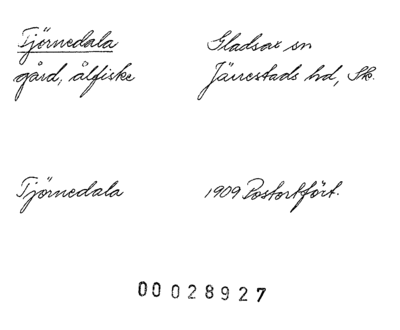 Tjörnedala Gladsax sn
gård, ålfiske Järrestads hd, Sk.
Tjörnedala 1909 Postortfört.
00028927